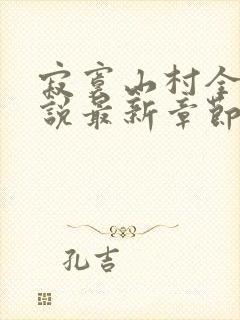 寂寞山村全
說最新章節
孔吉